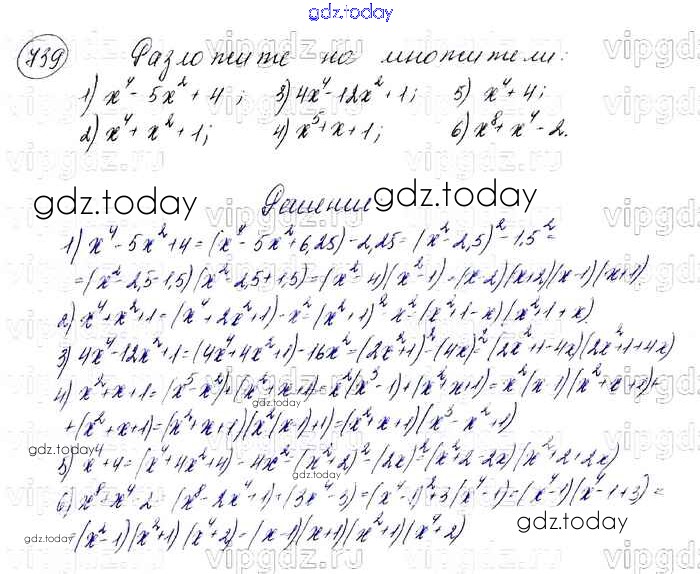 gdz.today
739 Разложите на множители:
1) x⁴ - 5x² + 4; 3) 4x⁴ - 12x² + 1; 5) x⁴ + 4;
2) x⁴ + x² + 1; 4) x⁵ + x + 1; 6) x⁸ + x⁴ - 2.
gdz.today Решение gdz.today
1) x⁴ - 5x² + 4 = (x⁴ - 5x² + 6,25) - 2,25 = (x² - 2,5)² - 1,5² =
= (x² - 2,5 - 1,5)(x² - 2,5 + 1,5) = (x² - 4)(x² - 1) = (x - 2)(x + 2)(x - 1)(x + 1)
2) x⁴ + x² + 1 = (x⁴ + 2x² + 1) - x² = (x² + 1)² - x² = (x² + 1 - x)(x² + 1 + x)
3) 4x⁴ - 12x² + 1 = (4x⁴ + 4x² + 1) - 16x² = (2x² + 1)² - (4x)² = (2x² + 1 - 4x)(2x² + 1 + 4x)
4) x² + x + 1 = (x⁵ - x²) + (x² + x + 1) = x²(x³ - 1) + (x² + x + 1) = x²(x - 1)(x² + x + 1) +
+ (x² + x + 1) = (x² + x + 1)(x²(x - 1) + 1) = (x² + x + 1)(x³ - x² + 1)
gdz.today
5) x⁴ + 4 = (x⁴ + 4x² + 4) - 4x² = (x² + 2)² - (2x)² = (x² + 2 - 2x)(x² + 2 + 2x)
6) x⁸ + x⁴ - 2 = (x⁸ - 2x⁴ + 1) + (3x⁴ - 3) = (x⁴ - 1)² + 3(x⁴ - 1) = (x⁴ - 1)(x⁴ - 1 + 3) =
= (x² - 1)(x² + 1)(x⁴ + 2) = (x - 1)(x + 1)(x² + 1)(x⁴ + 2)
gdz.today
gdz.today